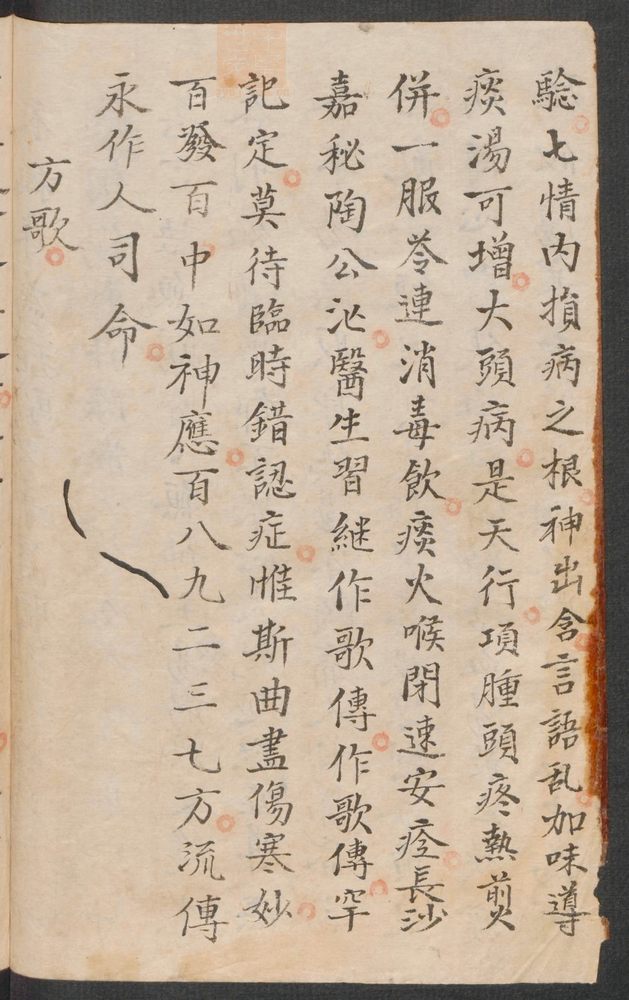 驗七情内損病之根神出含言語乱加味導
痰湯可增大頭病是天行項腫頭疼熱煎
併一服芩連消毒飲痰火喉閉速安痊長沙
嘉秘陶公沁醫生習継作歌傳作歌傳罕
記定莫待臨時錯認症惟斯曲盡傷寒妙
百發百中如神應百八九二三七方流傳
永作人司命
方歌